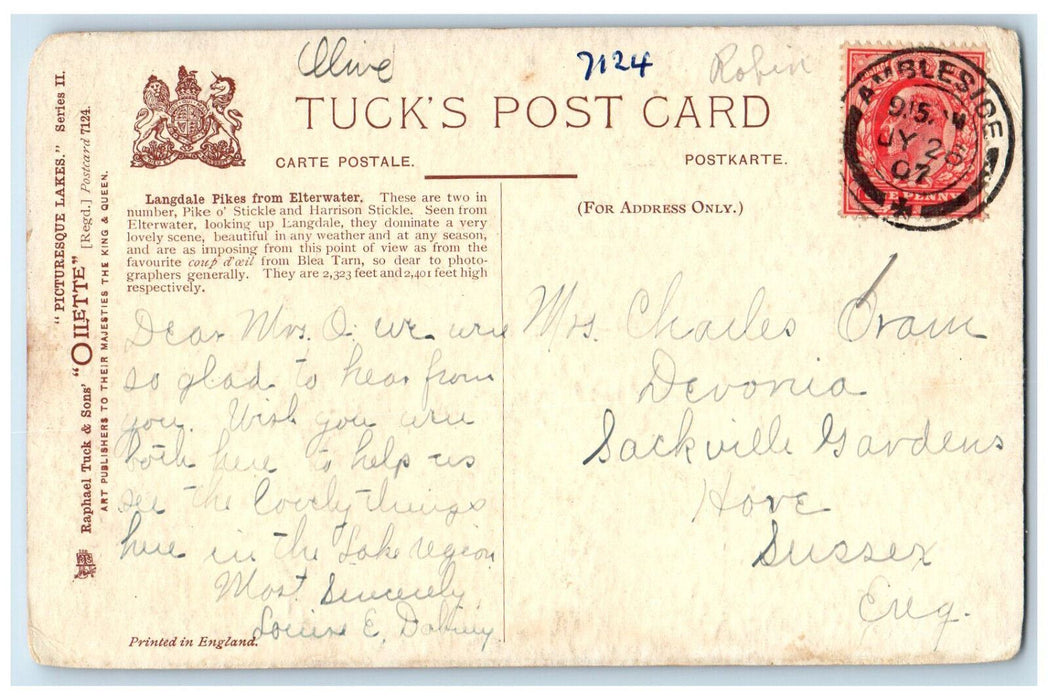 Olive
7124
Robin
TUCK'S POST CARD
CARTE POSTALE.
POSTKARTE.
AMBLESIDE
JY 26
07
"PICTURESQUE LAKES." Series II.
Raphael Tuck & Sons' "OILETTE" [Regd.] Postcard 7124.
ART PUBLISHERS TO THEIR MAJESTIES THE KING & QUEEN.
Langdale Pikes from Elterwater. These are two in
number, Pike o' Stickle and Harrison Stickle. Seen from
Elterwater, looking up Langdale, they dominate a very
lovely scene, beautiful in any weather and at any season,
and are as imposing from this point of view as from the
favourite coup d'œil from Blea Tarn, so dear to photo-
graphers generally. They are 2,323 feet and 2,401 feet high
respectively.
(FOR ADDRESS ONLY.)
Dear Mrs. O. we were
so glad to hear from
you. Wish you were
both here to help us
see the lovely things
here in the Lake region
Most Sincerely,
Louise E.
Mrs. Charles Oram
Devonia
Sackville Gardens
Hove
Sussex
Eng.
Printed in England.